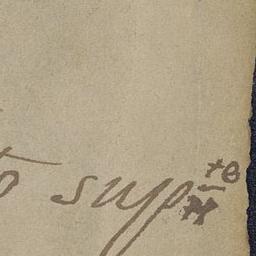 to sup te